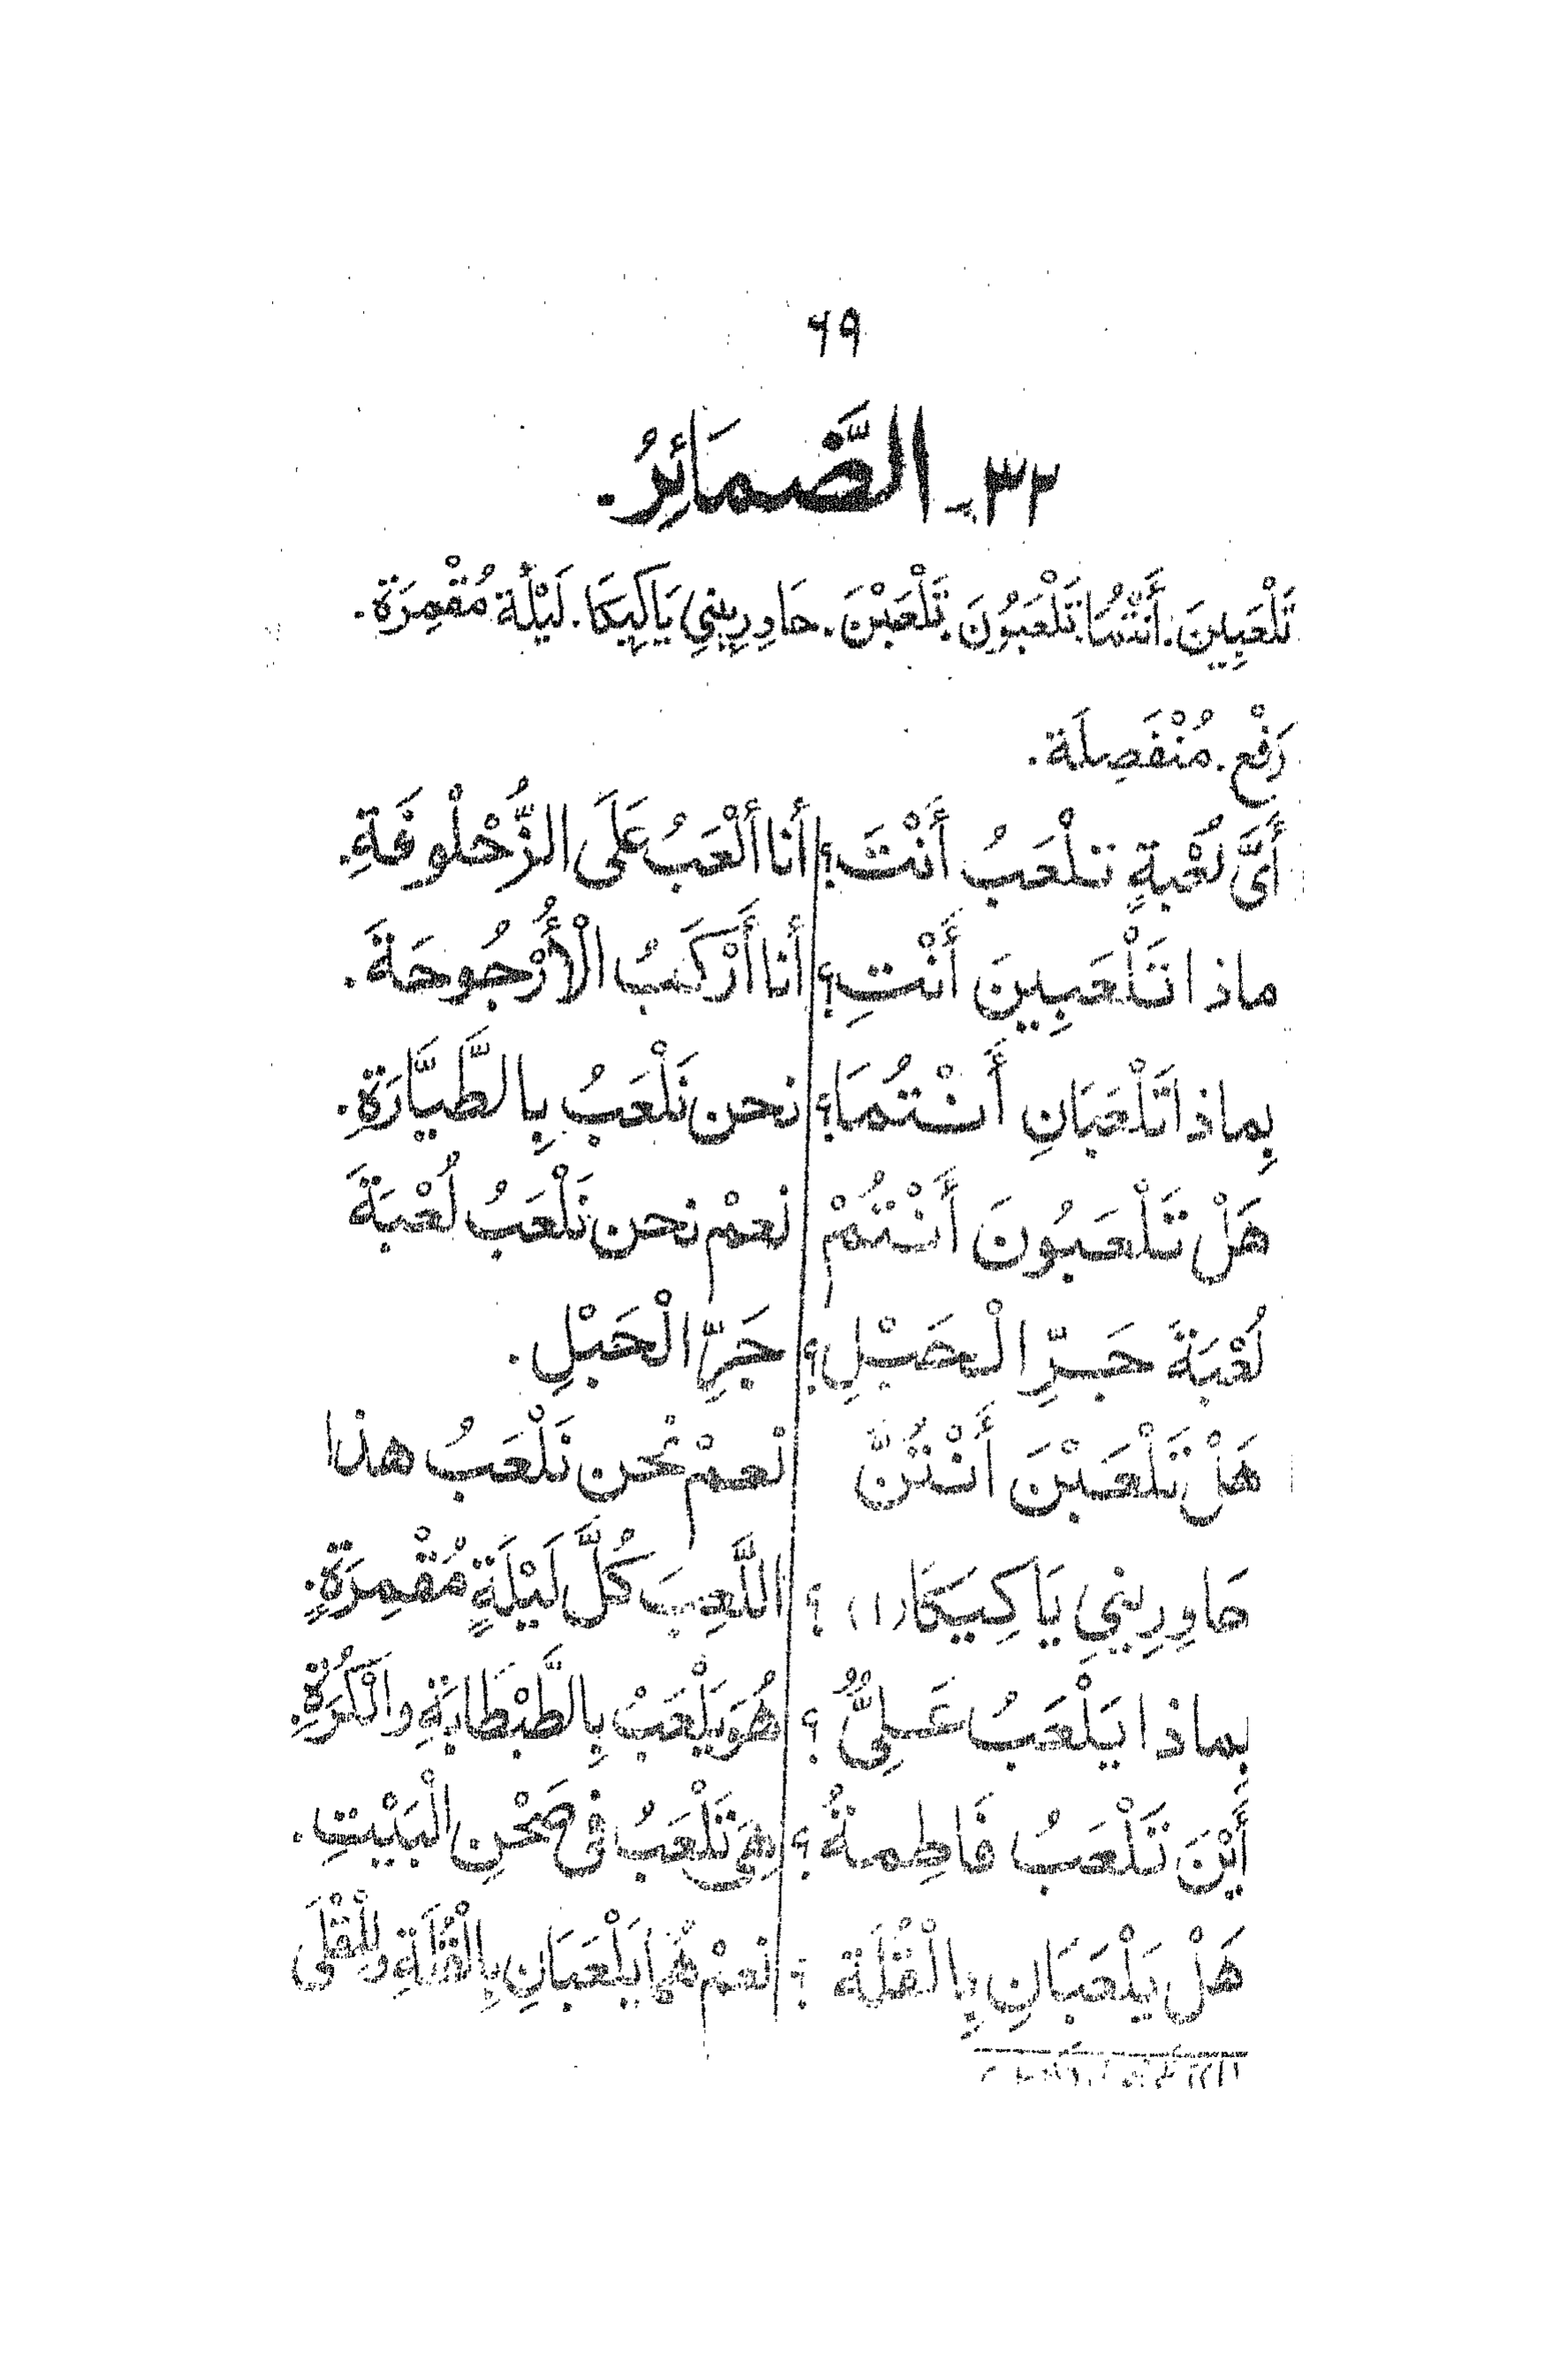 ٦٩
٣٢ - الضَّمَائِرُ.
تَلْعَبِينَ. أَنْتُمَا. تَلْعَبُونَ. تَلْعَبْنَ. حَاوِرِينِي يَاكِيكَا. لَيْلَة مُقْمِرَة.
رَفْع. مُنْفَصِلَة.
أَىَّ لُعْبَةٍ تَلْعَبُ أَنْتَ؟ أَنا أَلْعَبُ عَلَى الزُّحْلُوفَةِ.
ماذا تَلْعَبِينَ أَنْتِ؟ أَنا أَرْكَبُ الْأُرْجُوحَةَ.
بِماذا تَلْعَبَانِ أَنْتُمَا؟ نحن نَلْعَبُ بِالطَّيَّارَةِ.
هَلْ تَلْعَبُونَ أَنْتُمْ نعمْ نحن نَلْعَبُ لُعْبَةَ
لُعْبَةَ جَرِّ الْحَبْلِ؟ جَرِّ الْحَبْلِ.
هَلْ تَلْعَبْنَ أَنْتُنَّ نعمْ نحن نَلْعَبُ هذا
حَاوِرِينِي يَا كِيَكَا (١) ؟ اللَّعِبَ كُلَّ لَيْلَةٍ مُقْمِرَةٍ.
بِماذا يَلْعَبُ عَلِىٌّ ؟ هُوَ يَلْعَبُ بِالطَّبْطَابَةِ والْكُرَةِ.
أَيْنَ تَلْعَبُ فَاطِمةُ ؟ هِىَ تَلْعَبُ فى صَحْنِ الْبَيْتِ.
هَلْ يَلْعَبَانِ بِالْقُلَة ؟ نعمْ هُما يَلْعَبَانِ بِالْقُلَةِ والْمِقْلَى